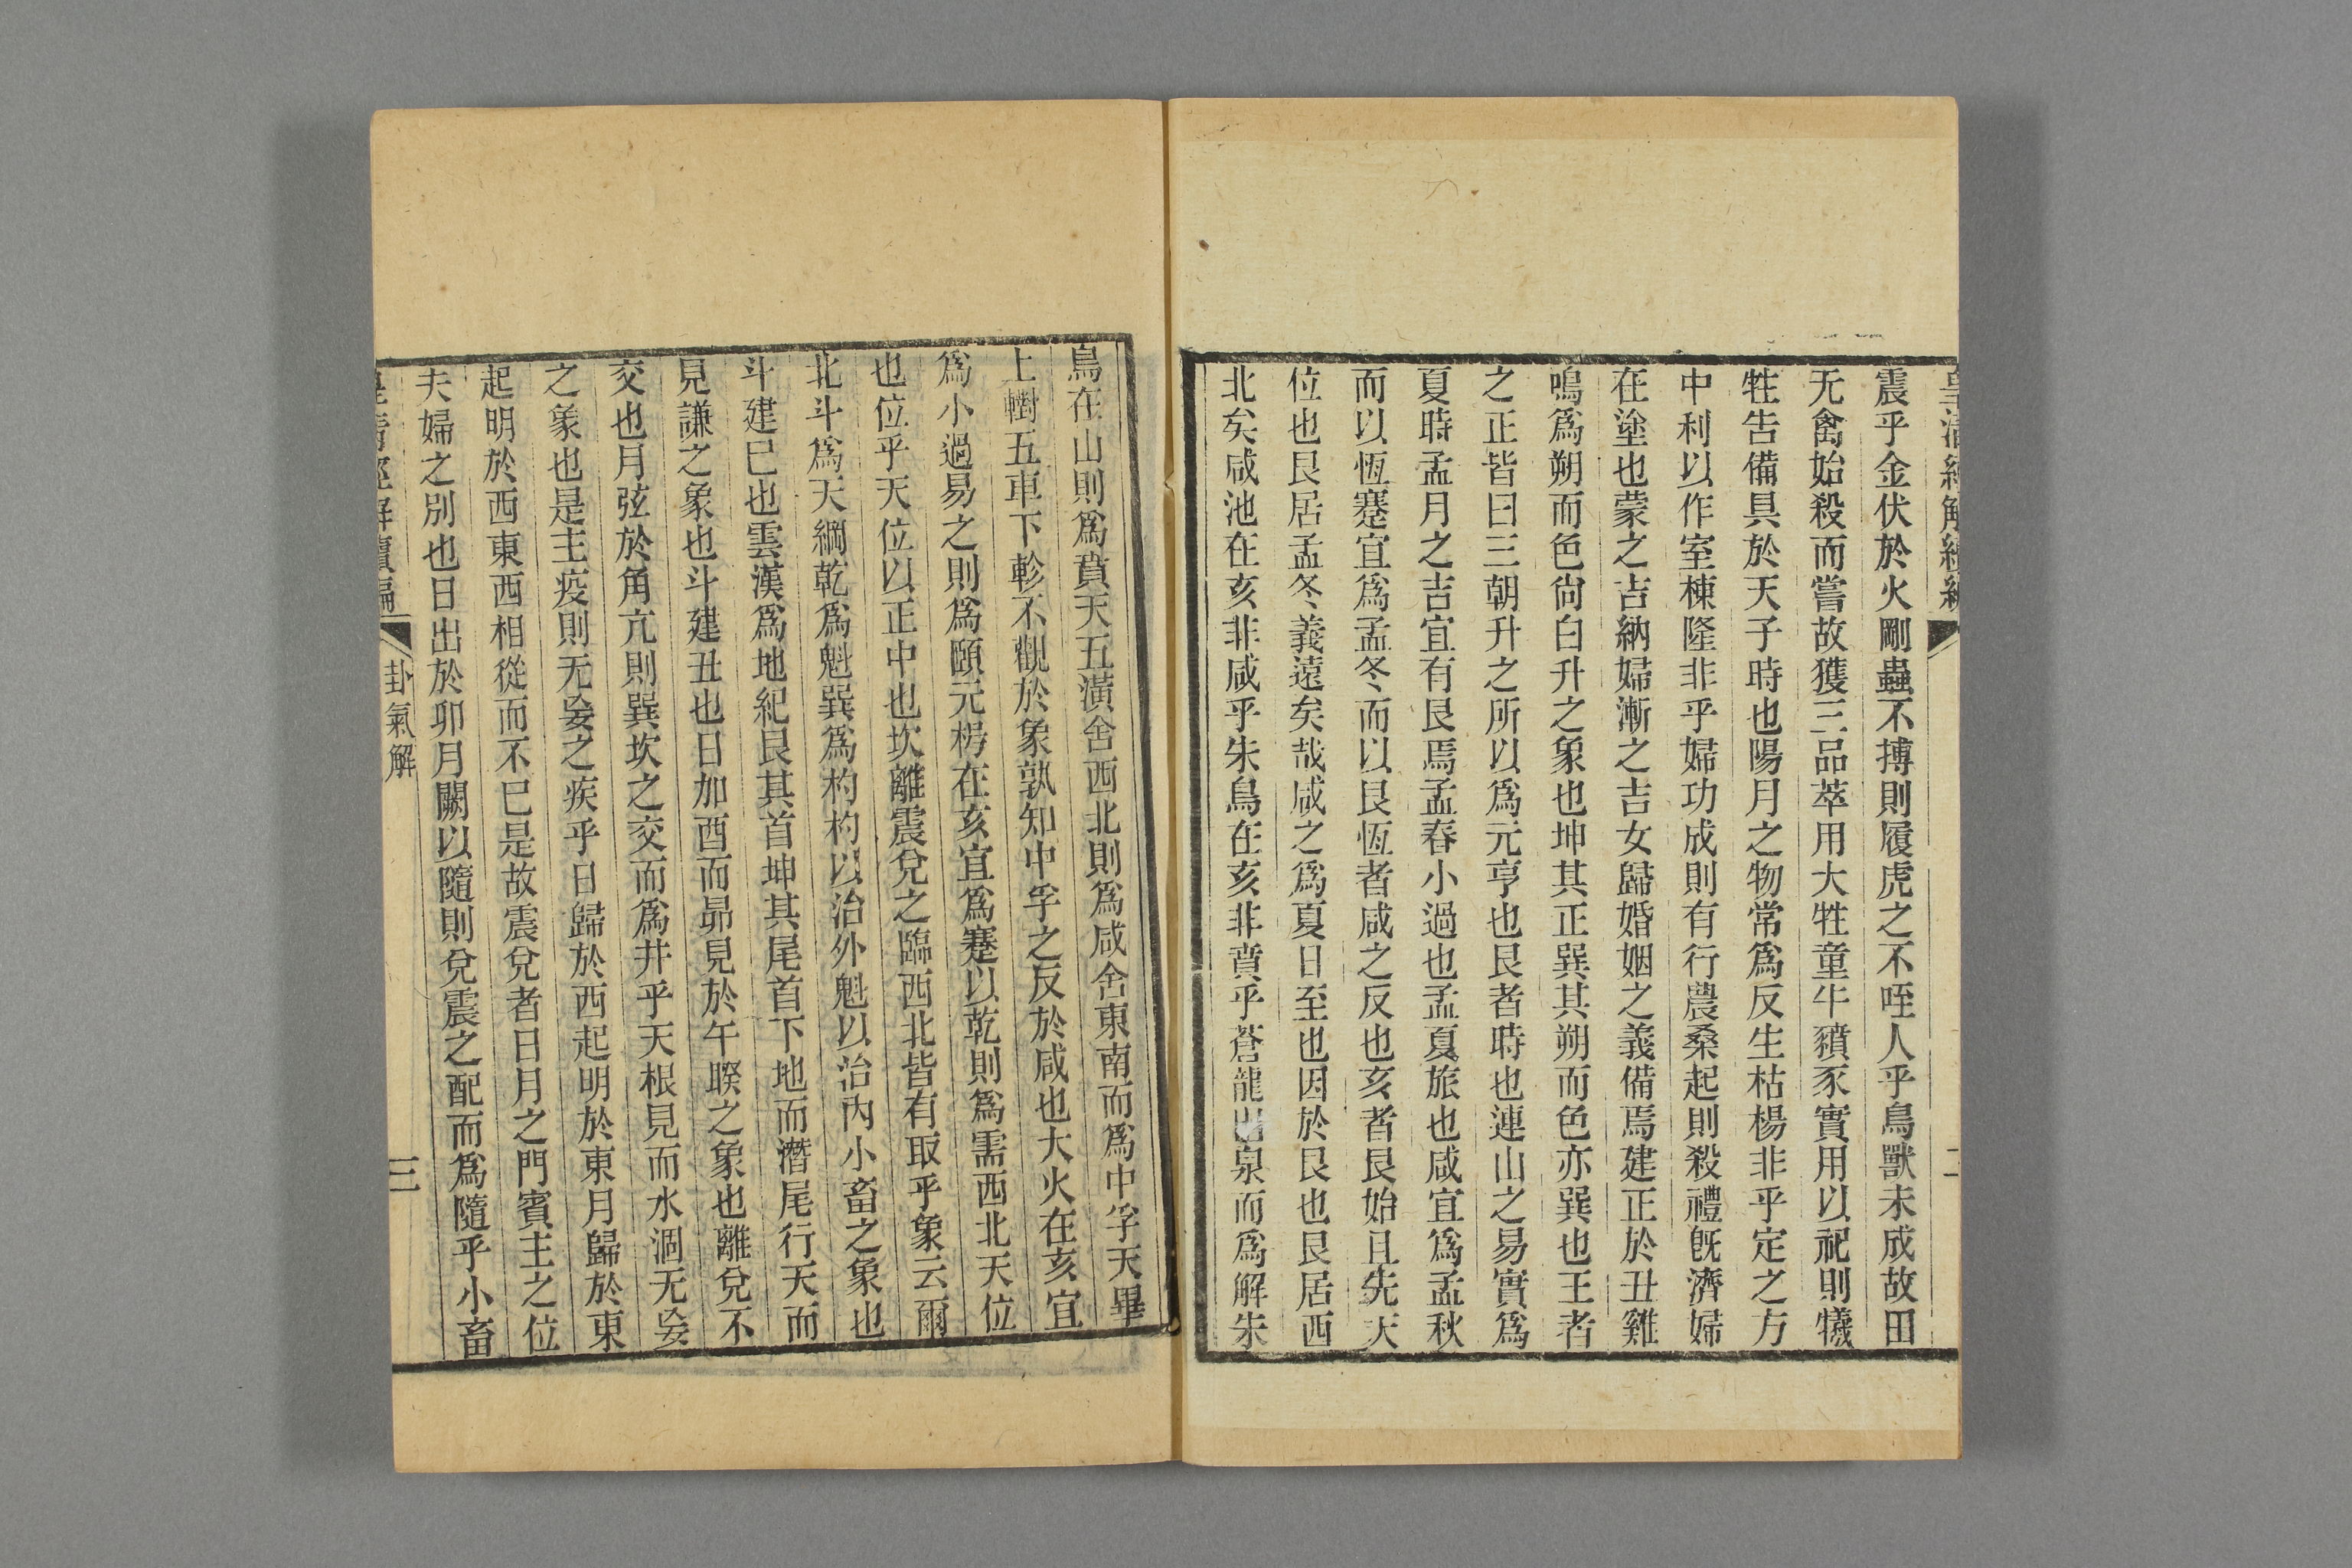 皇清經解續編
二
震乎金伏於火剛蟲不搏則履虎之不咥人乎鳥獸未成故田
无禽始殺而嘗故獲三品萃用大牲童牛豶豕實用以祀則犧
牲告備具於天子時也陽月之物常爲反生枯楊非乎定之方
中利以作室棟隆非乎婦功成則有行農桑起則殺禮旣濟婦
在塗也蒙之吉納婦漸之吉女歸婚姻之義備焉建正於丑雞
鳴爲朔而色尙白升之象也坤其正巽其朔而色亦巽也王者
之正皆曰三朝升之所以爲元亨也艮者時也連山之易實爲
夏時孟月之吉宜有艮焉孟春小過也孟夏旅也咸宜爲孟秋
而以恆蹇宜爲孟冬而以艮恆者咸之反也亥者艮始且先天
位也艮居孟冬義遠矣哉咸之爲夏日至也因於艮也艮居西
北矣咸池在亥非咸乎朱鳥在亥非賁乎蒼龍出泉而爲解朱
鳥在山則爲賁天五潢舍西北則爲咸舍東南而爲中孚天畢
上轛五車下軫不觀於象孰知中孚之反於咸也大火在亥宜
爲小過易之則爲頤元枵在亥宜爲蹇以乾則爲需西北天位
也位乎天位以正中也坎離震兌之臨西北皆有取乎象云爾
北斗爲天綱乾爲魁巽爲杓杓以治外魁以治內小畜之象也
斗建巳也雲漢爲地紀艮其首坤其尾首下地而潛尾行天而
見謙之象也斗建丑也日加酉而昴見於午睽之象也離兌不
交也月弦於角亢則巽坎之交而爲井乎天根見而水涸无妄
之象也是主疫則无妄之疾乎日歸於西起明於東月歸於東
起明於西東西相從而不已是故震兌者日月之門賓主之位
夫婦之別也日出於卯月闕以隨則兌震之配而爲隨乎小畜
皇清經解續編
卦氣解
三